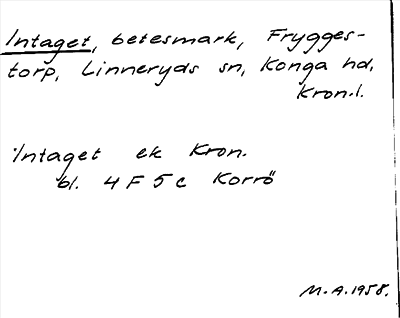 Intaget, betesmark, Frygges-
torp, Linneryds sn, Konga hd,
Kron.l.
Intaget ek Kron.
bl. 4 F 5 c Korrö
M.A. 1958.